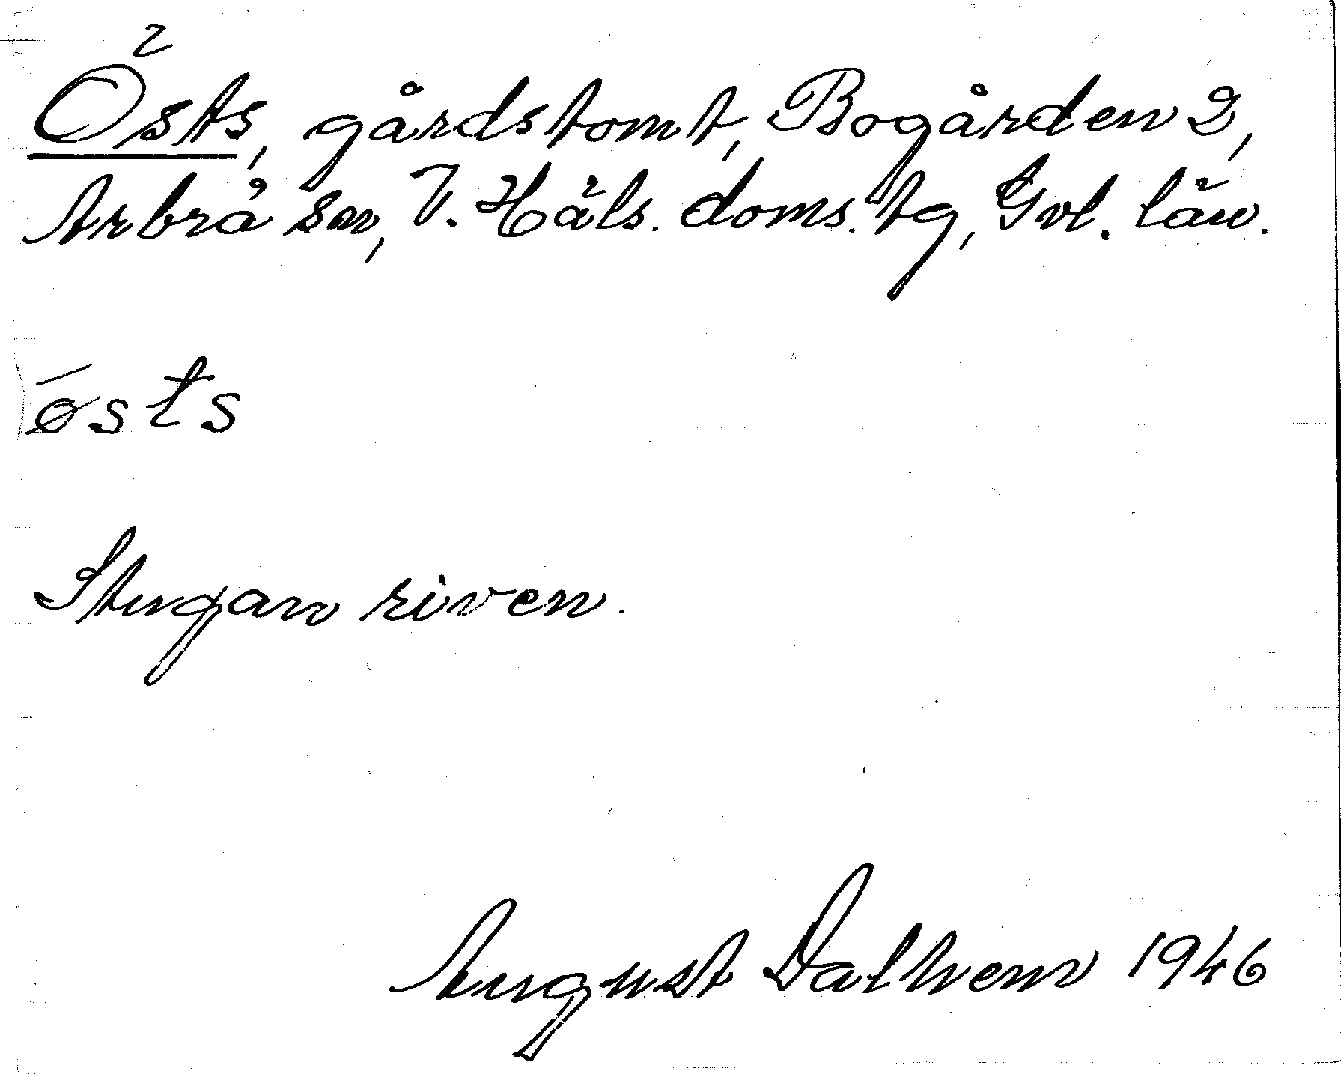 Östs, gårdstomt, Bogården 2,
Arbrå sn, V. Häls. doms. tg, Gvl. län.
östs
Stugan riven.
August Dalhem 1946